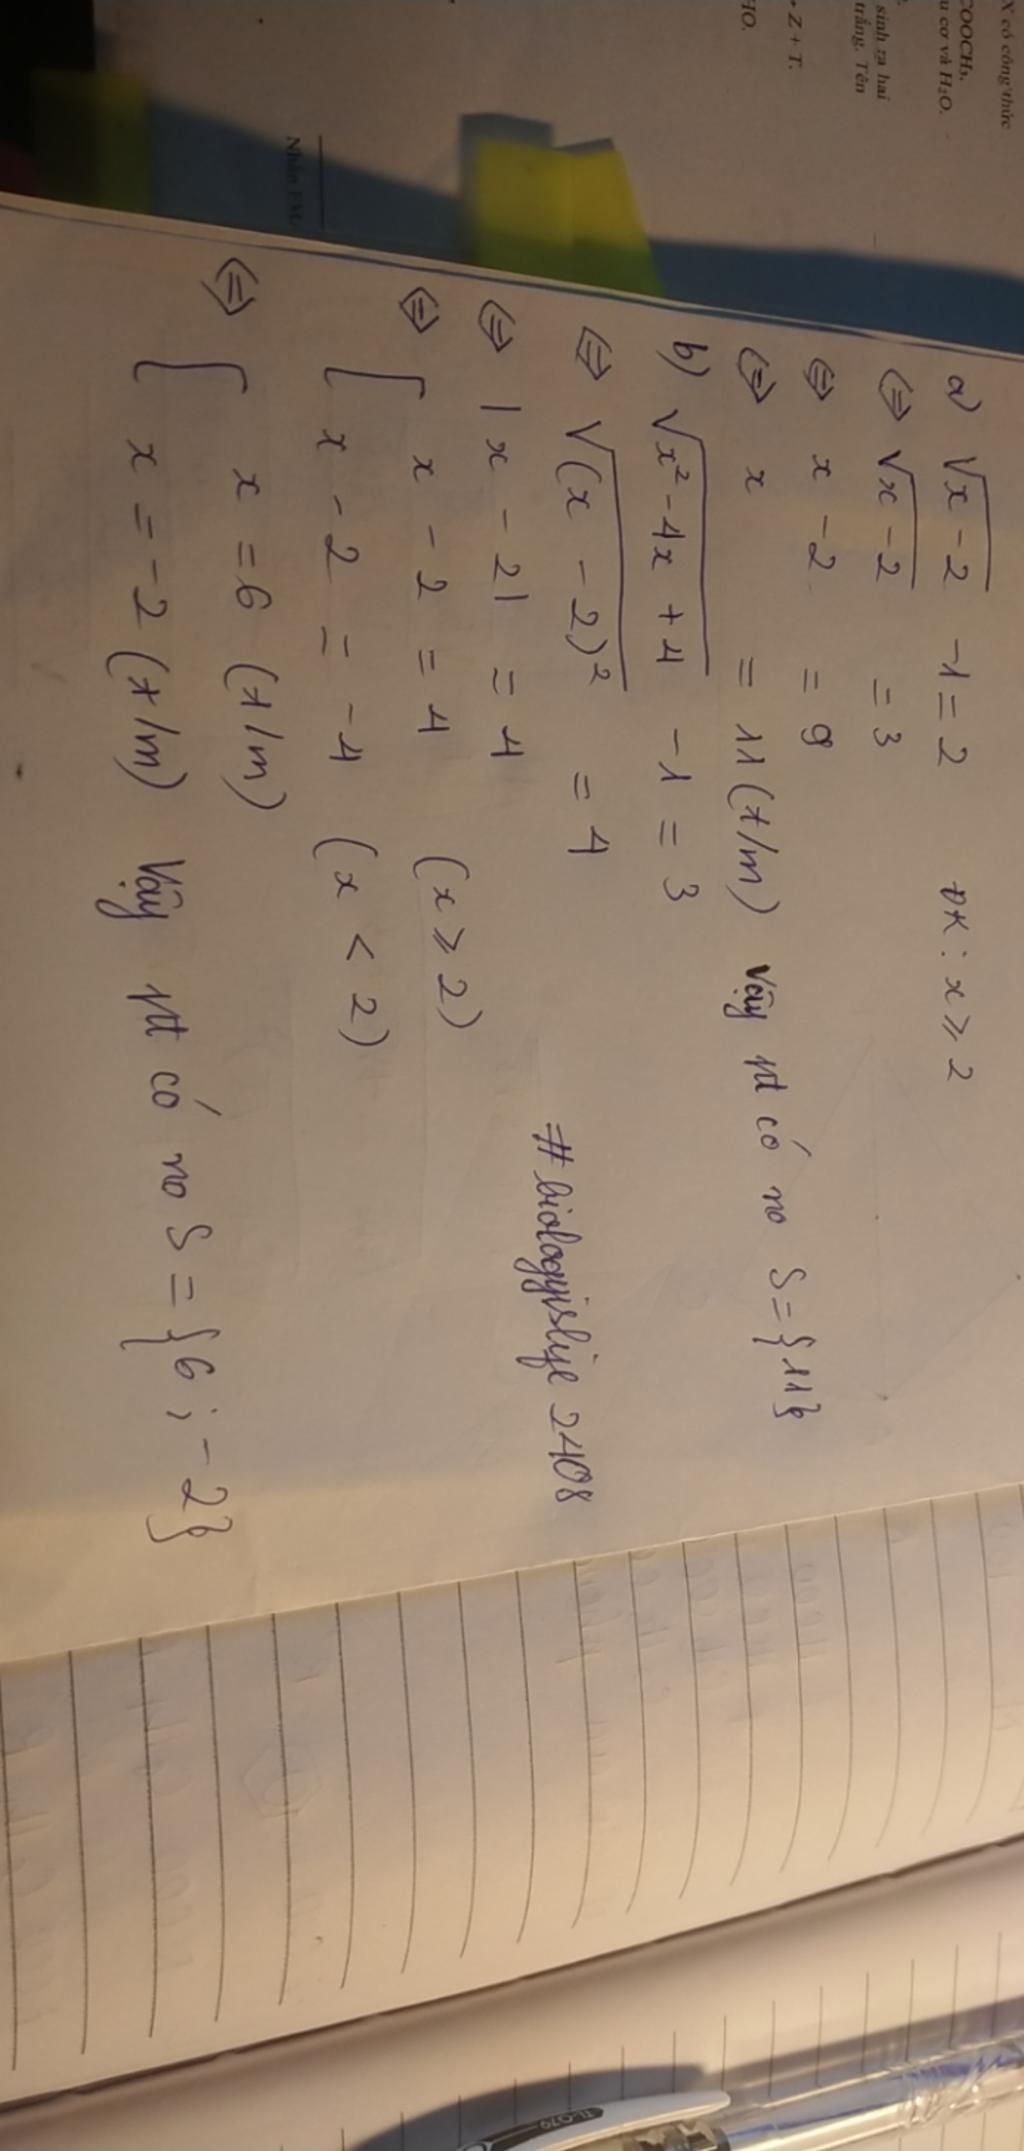 X có công thức
COOCH₃.
u cơ và H₂O.
sinh ra hai
trắng. Tên
• Z + T.
HO.
a) √(x - 2) - 1 = 2 ĐK : x ⩾ 2
⇔ √(x - 2) = 3
⇔ x - 2 = 9
⇔ x = 11 (t/m) Vậy pt có no S = {11}
b) √(x² - 4x + 4) - 1 = 3
⇔ √((x - 2)²) = 4
#biologyislife2408
⇔ |x - 2| = 4
⇔ [ x - 2 = 4 (x ⩾ 2)
x - 2 = -4 (x < 2)
⇔ [ x = 6 (t/m)
x = -2 (t/m) Vậy pt có no S = {6 ; -2}
TL-079